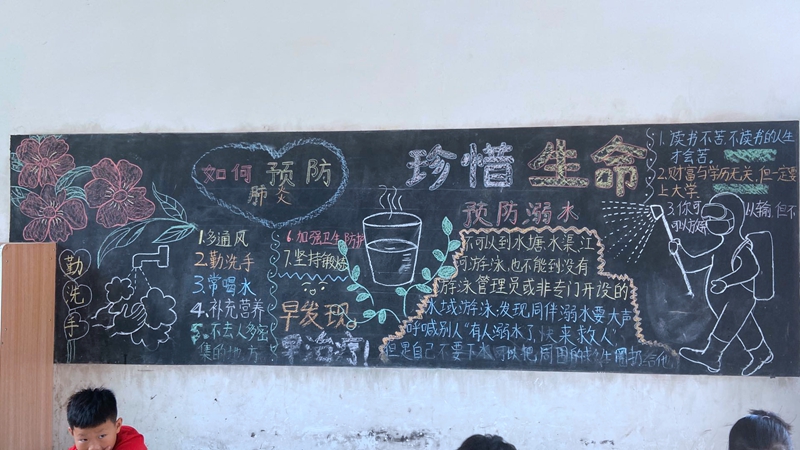 勤洗手
如何预防
肺炎
1.多通风
2.勤洗手
3.常喝水
4.补充营养
5.不去人多密
集的地方
6.加强卫生防护
7.坚持锻炼
早发现
早治疗!
珍惜生命
预防溺水
不可以到水塘水渠、江
河游泳,也不能到没有
游泳管理员或非专门开设的
水域游泳,发现同伴溺水要大声
呼喊别人“有人溺水了快来救人”
但是自己不要下水可以把
1.读书不苦,不读书的人生
才会苦。
2.财富与学历无关,但一定要
上大学
3.你可以输,但不
可以放弃